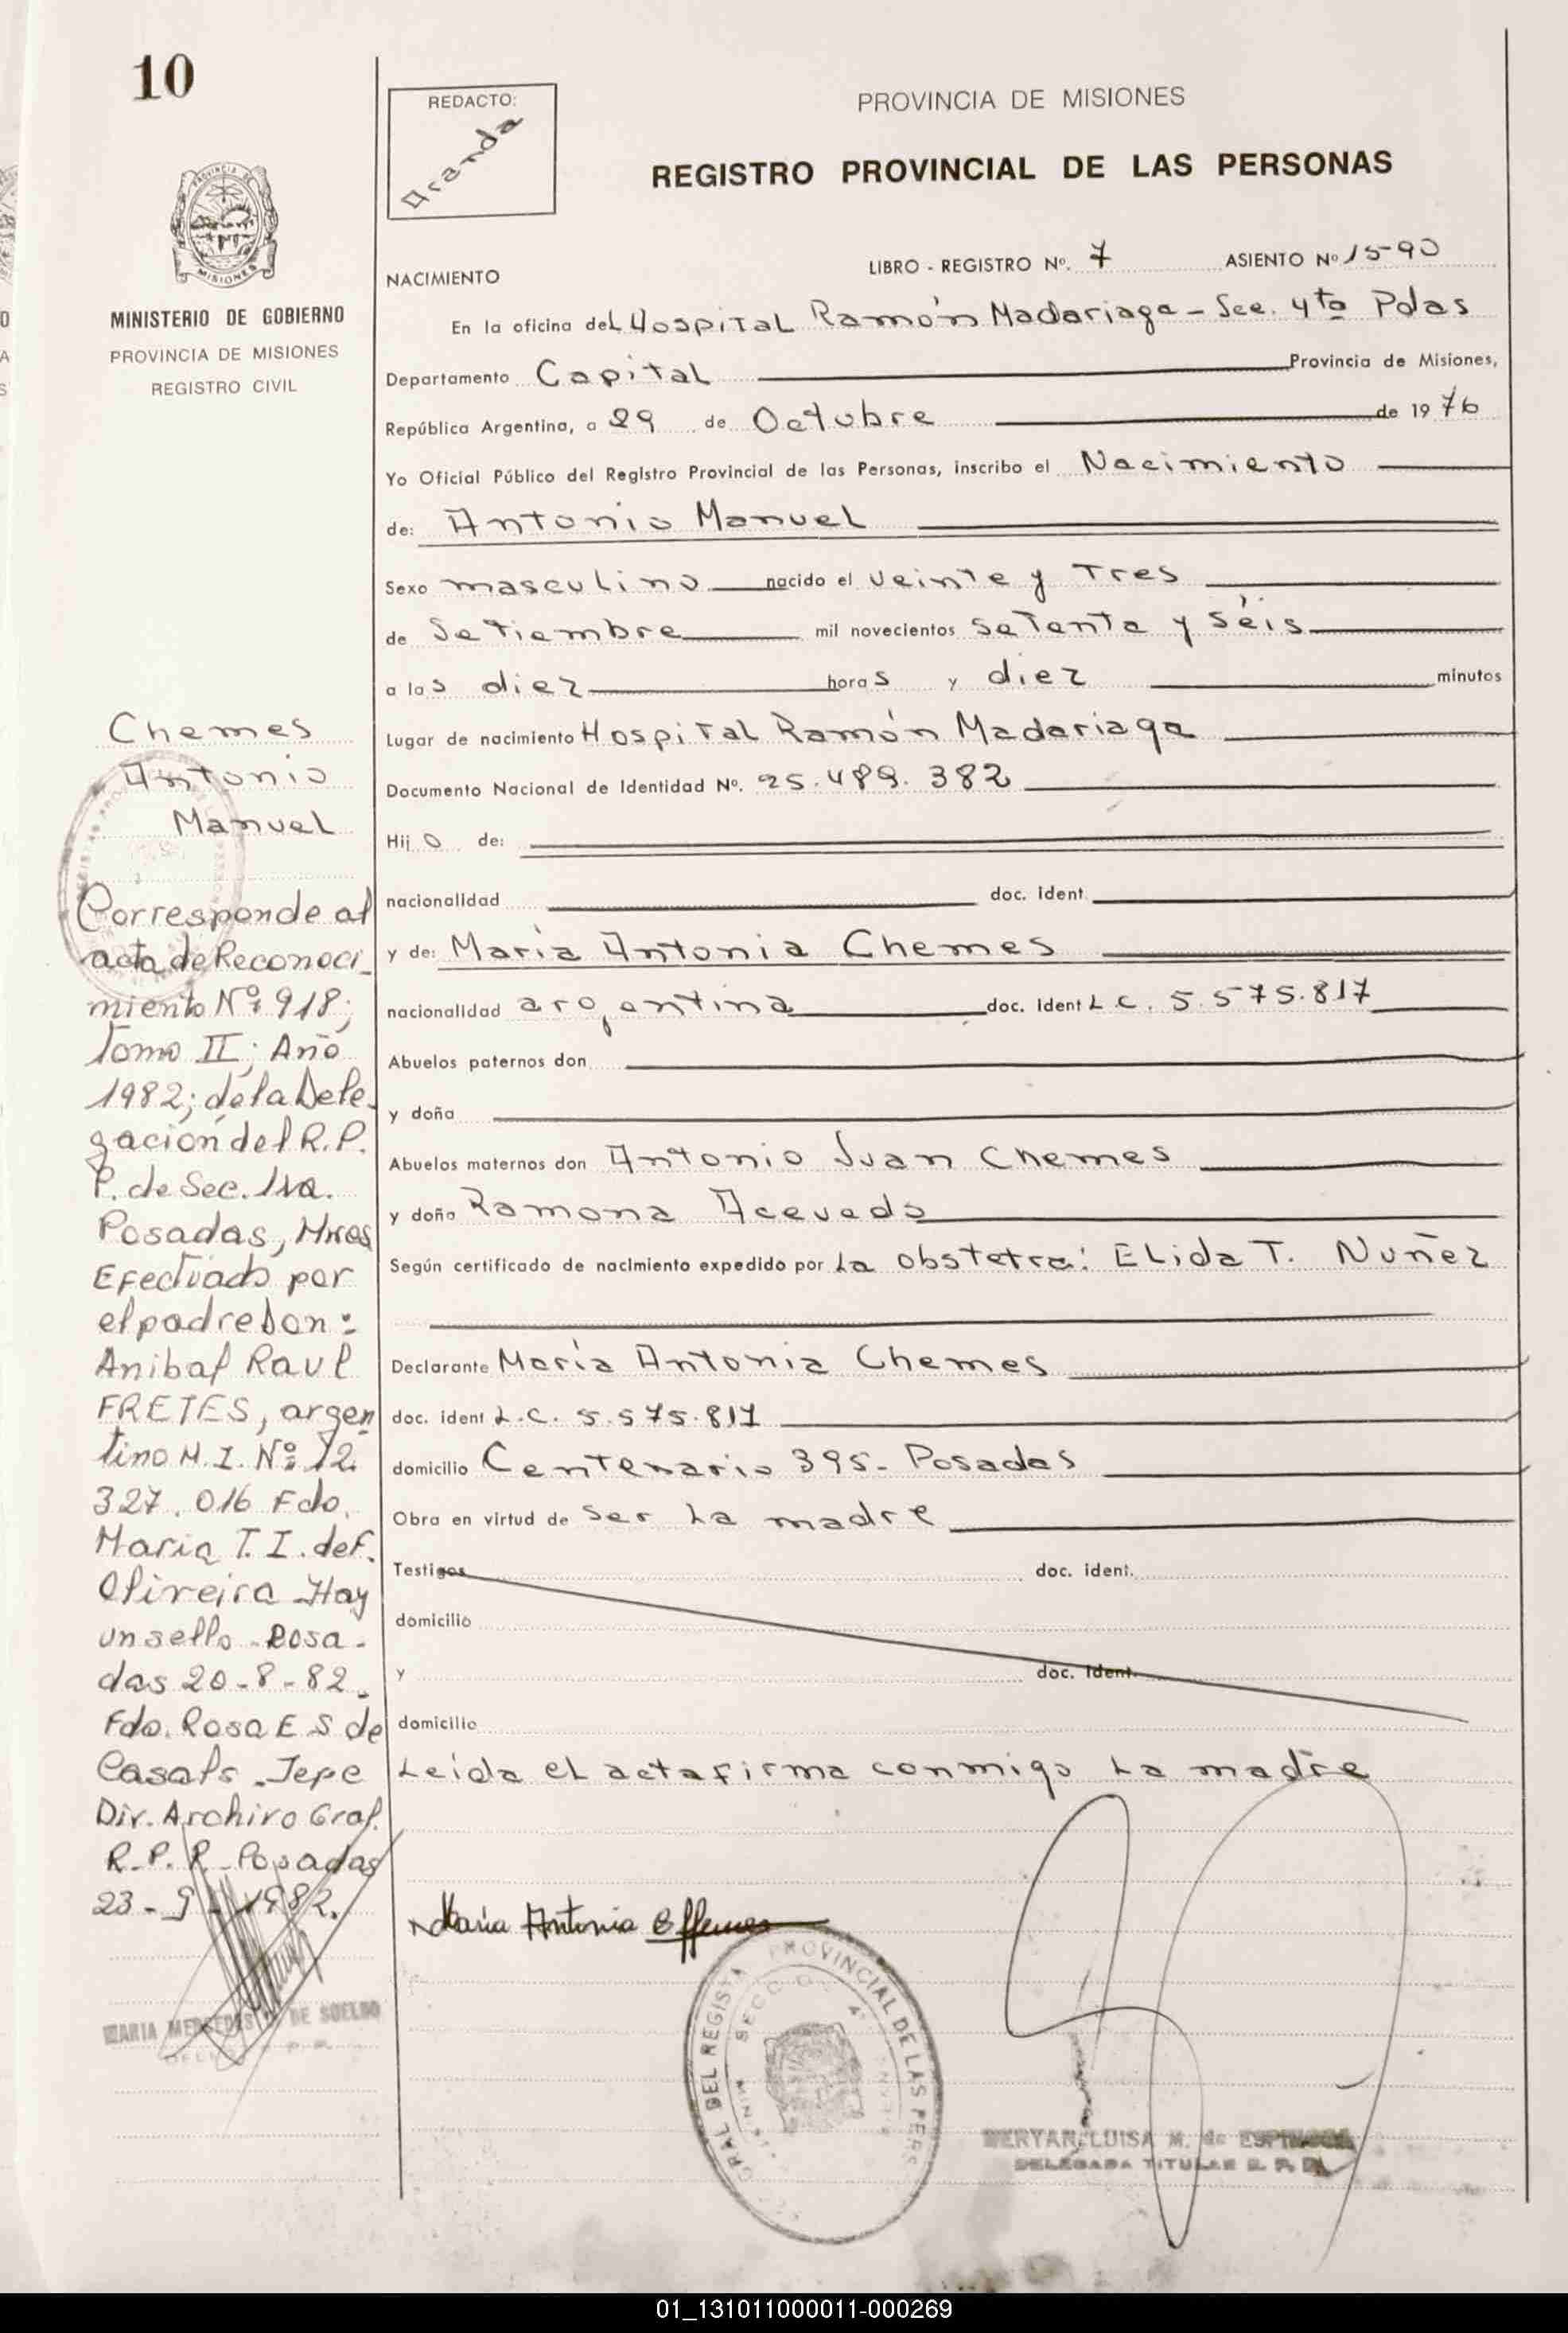 10
REDACTO:
Aranda
PROVINCIA DE MISIONES
REGISTRO PROVINCIAL DE LAS PERSONAS
NACIMIENTO
LIBRO - REGISTRO Nº. 7 ASIENTO Nº 1590
En la oficina del Hospital Ramón Madariaga - Sec. 4ta Pdas
Departamento Capital Provincia de Misiones,
República Argentina, a 29 de Octubre de 1976
Yo Oficial Público del Registro Provincial de las Personas, inscribo el Nacimiento
de: Antonio Manuel
Sexo masculino nacido el veinte y Tres
de Setiembre mil novecientos setenta y séis
a las diez horas y diez minutos
Lugar de nacimiento Hospital Ramón Madariaga
Documento Nacional de Identidad Nº. 25.489.382
Hijo de:
nacionalidad doc. ident.
y de: María Antonia Chemes
nacionalidad argentina doc. Ident L.C. 5.575.817
Abuelos paternos don
y doña
Abuelos maternos don Antonio Juan Chemes
y doña Ramona Acevedo
Según certificado de nacimiento expedido por La obstetra: Elida T. Nuñez
Declarante María Antonia Chemes
doc. ident L.C. 5.575.817
domicilio Centenario 395- Posadas
Obra en virtud de ser La madre
Testigos doc. ident.
domicilio
y doc. Ident.
domicilio
Leída el acta firma conmigo La madre
María Antonia Chemes
GRAL DEL REGISTRO PROVINCIAL DE LAS PERS
LUISA M. de ESPINOSA
DELEGADA TITULAR R. P. P.
PROVINCIA DE
MISIONES
MINISTERIO DE GOBIERNO
PROVINCIA DE MISIONES
REGISTRO CIVIL
Chemes
Antonio
Manuel
Corresponde al
acta de Reconoci_
miento Nº 918;
Tomo II; Año
1982; de la Dele_
gación del R.P.
P. de Sec. 1ra.
Posadas, Mnes
Efectuado por
el padre Don:
Anibal Raul
FRETES, argen
tino M.I. Nº 12.
327.016 Fdo.
Maria T. I. de F.
Olireira Hay
un sello - Posa-
das 20-8-82.
Fdo. Rosa E S de
Casals. Jepe
Dir. Archivo Gral.
R.P.P. Posadas
23-9-1982.
MARIA MERCEDES DE SOELDO
01_131011000011-000269